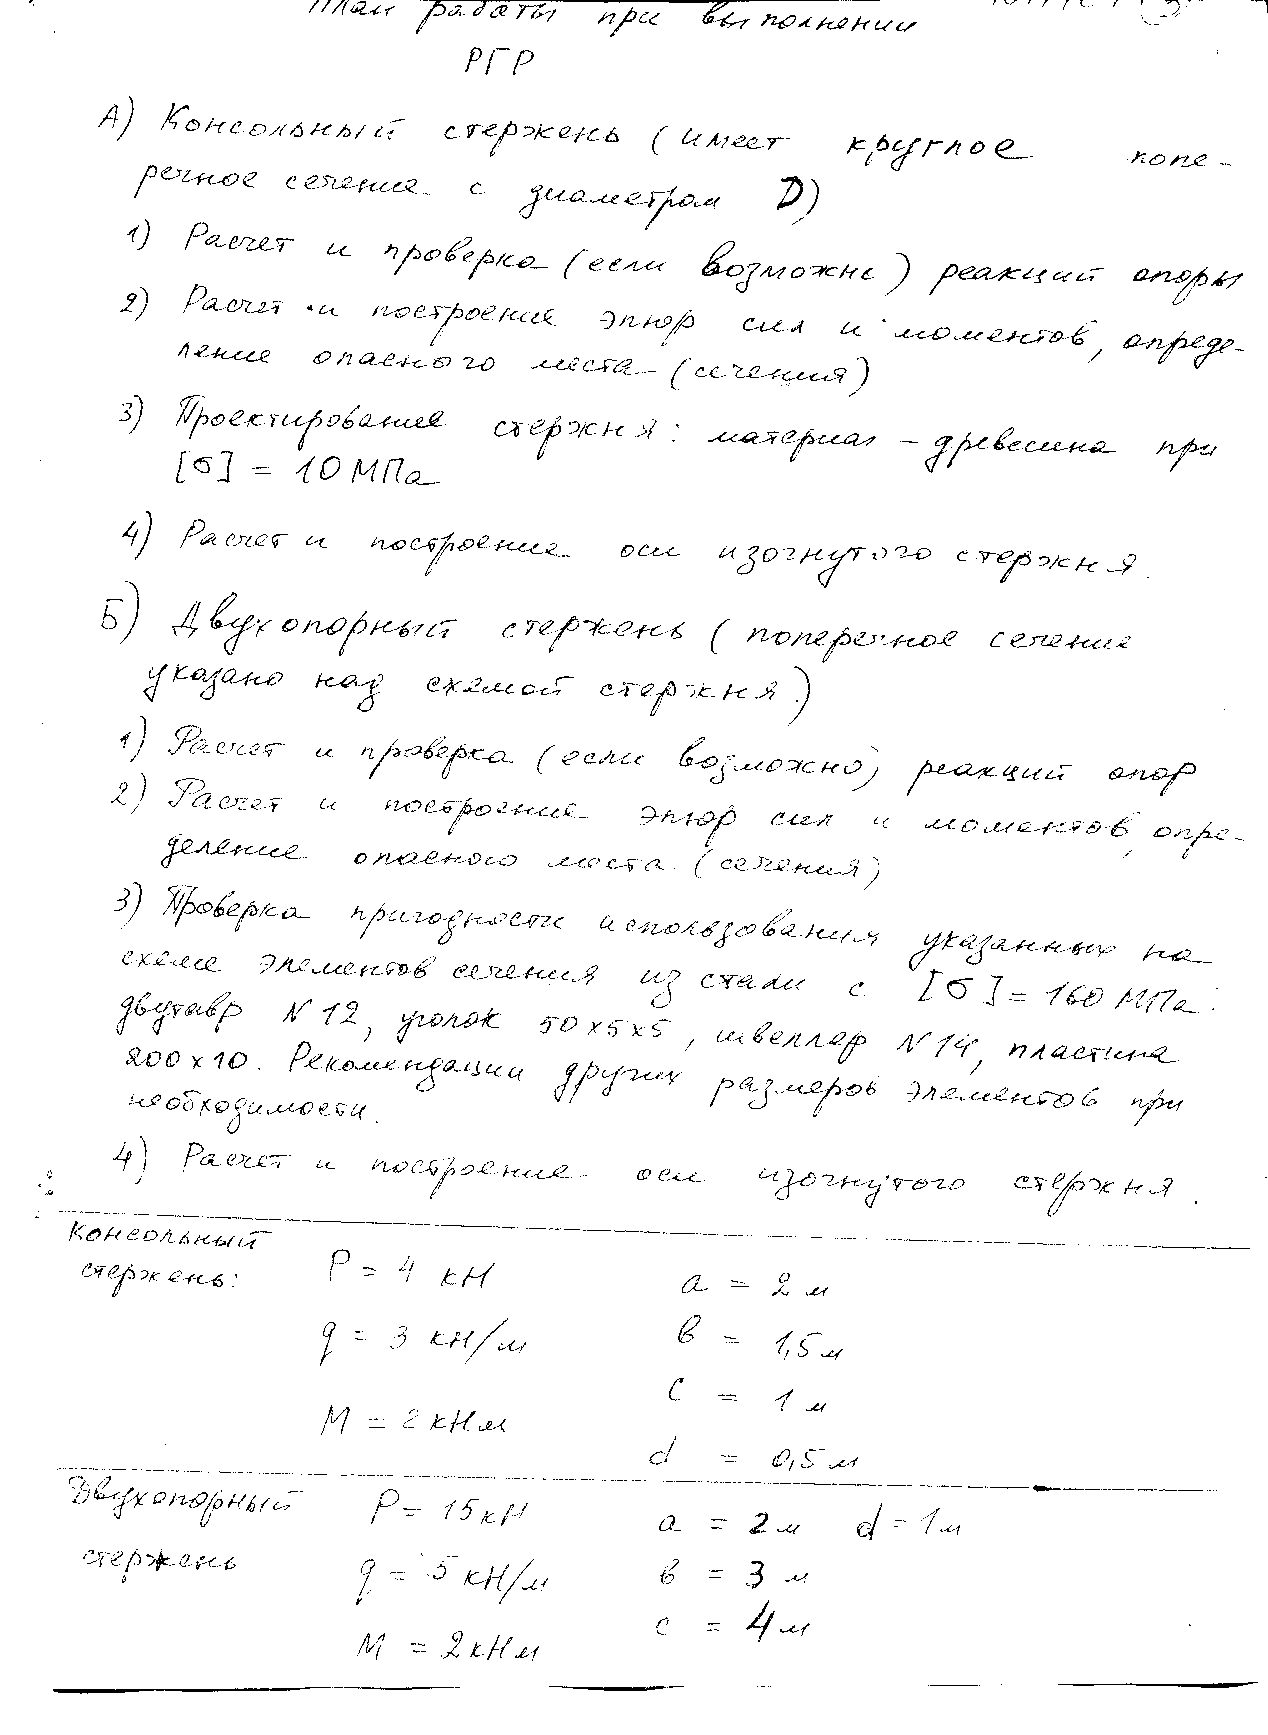 План работы при выполнении
РГР
А) Консольный стержень (имеет круглое попе-
речное сечение с диаметром D)
1) Расчет и проверка (если возможно) реакций опоры
2) Расчет и построение эпюр сил и моментов, опреде-
ление опасного места (сечения)
3) Проектирование стержня: материал – древесина при
[σ] = 10 МПа
4) Расчет и построение оси изогнутого стержня.
Б) Двухопорный стержень (поперечное сечение
указано над схемой стержня)
1) Расчет и проверка (если возможно) реакций опор
2) Расчет и построение эпюр сил и моментов, опре-
деление опасного места (сечения)
3) Проверка пригодности использования указанных на
схеме элементов сечения из стали с [σ] = 160 МПа:
двутавр N 12, уголок 50х5х5, швеллер N 14, пластина
200х10. Рекомендации других размеров элементов при
необходимости.
4) Расчет и построение оси изогнутого стержня.
Консольный
стержень:
P = 4 кН a = 2 м
q = 3 кН/м в = 1,5 м
c = 1 м
M = 2 кНм
d = 0,5 м
Двухопорный
стержень
P = 15 кН a = 2 м d = 1 м
q = 5 кН/м в = 3 м
M = 2 кНм c = 4 м